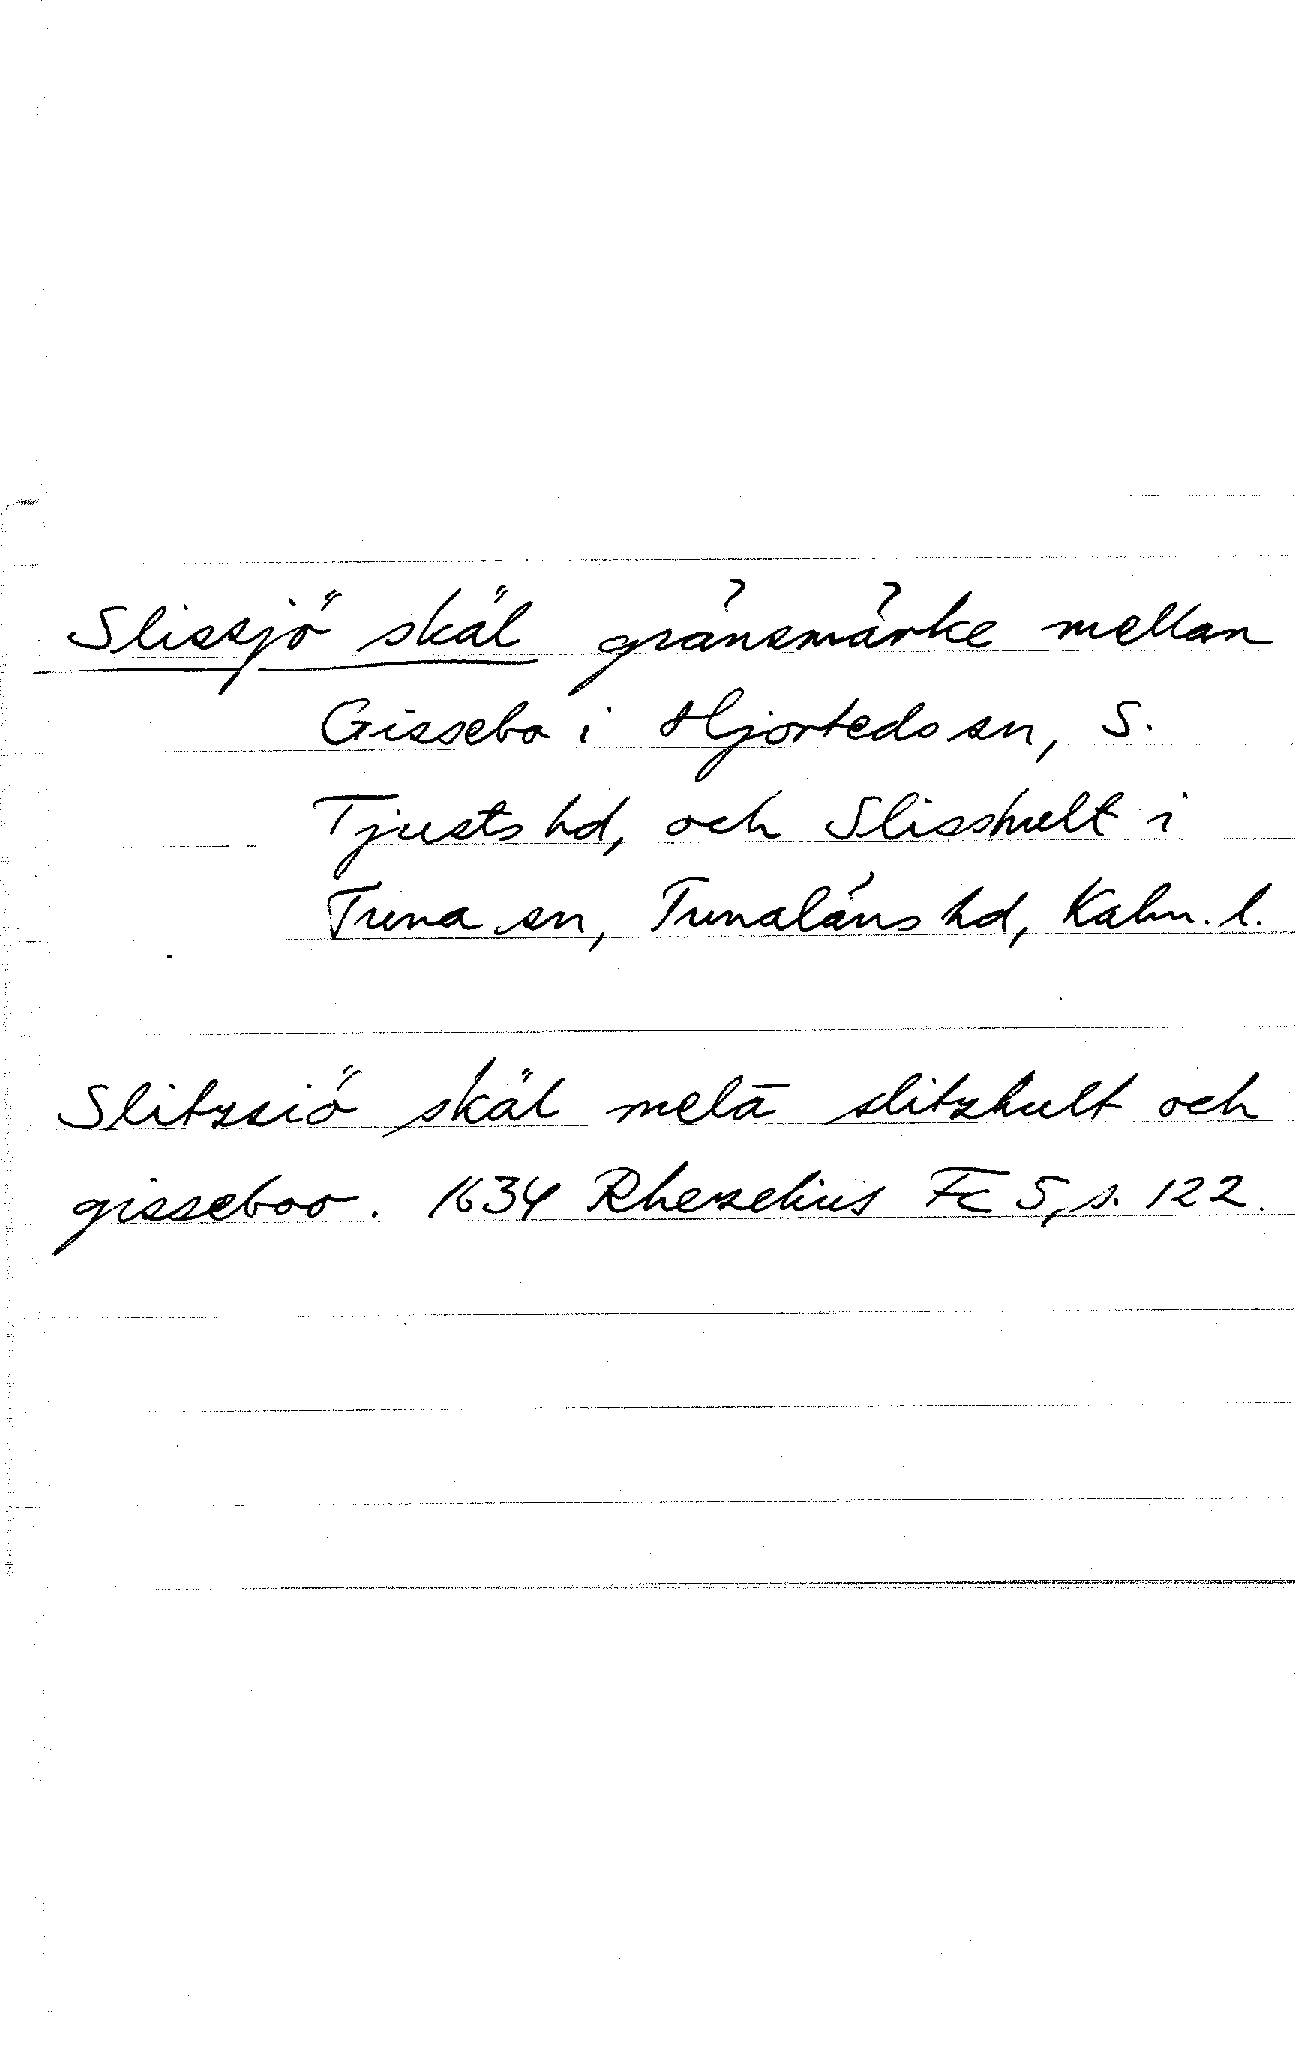 Slissjö skäl gränsmärke mellan
Gissebo i Hjorteds sn, S.
Tjusts hd, och Slisshult i
Tuna sn, Tunaläns hd, Kalm. l.
Slitzsiö skäl melā slitzhult och
gisseboo. 1634 Rhezelius Fc 5, s. 122.